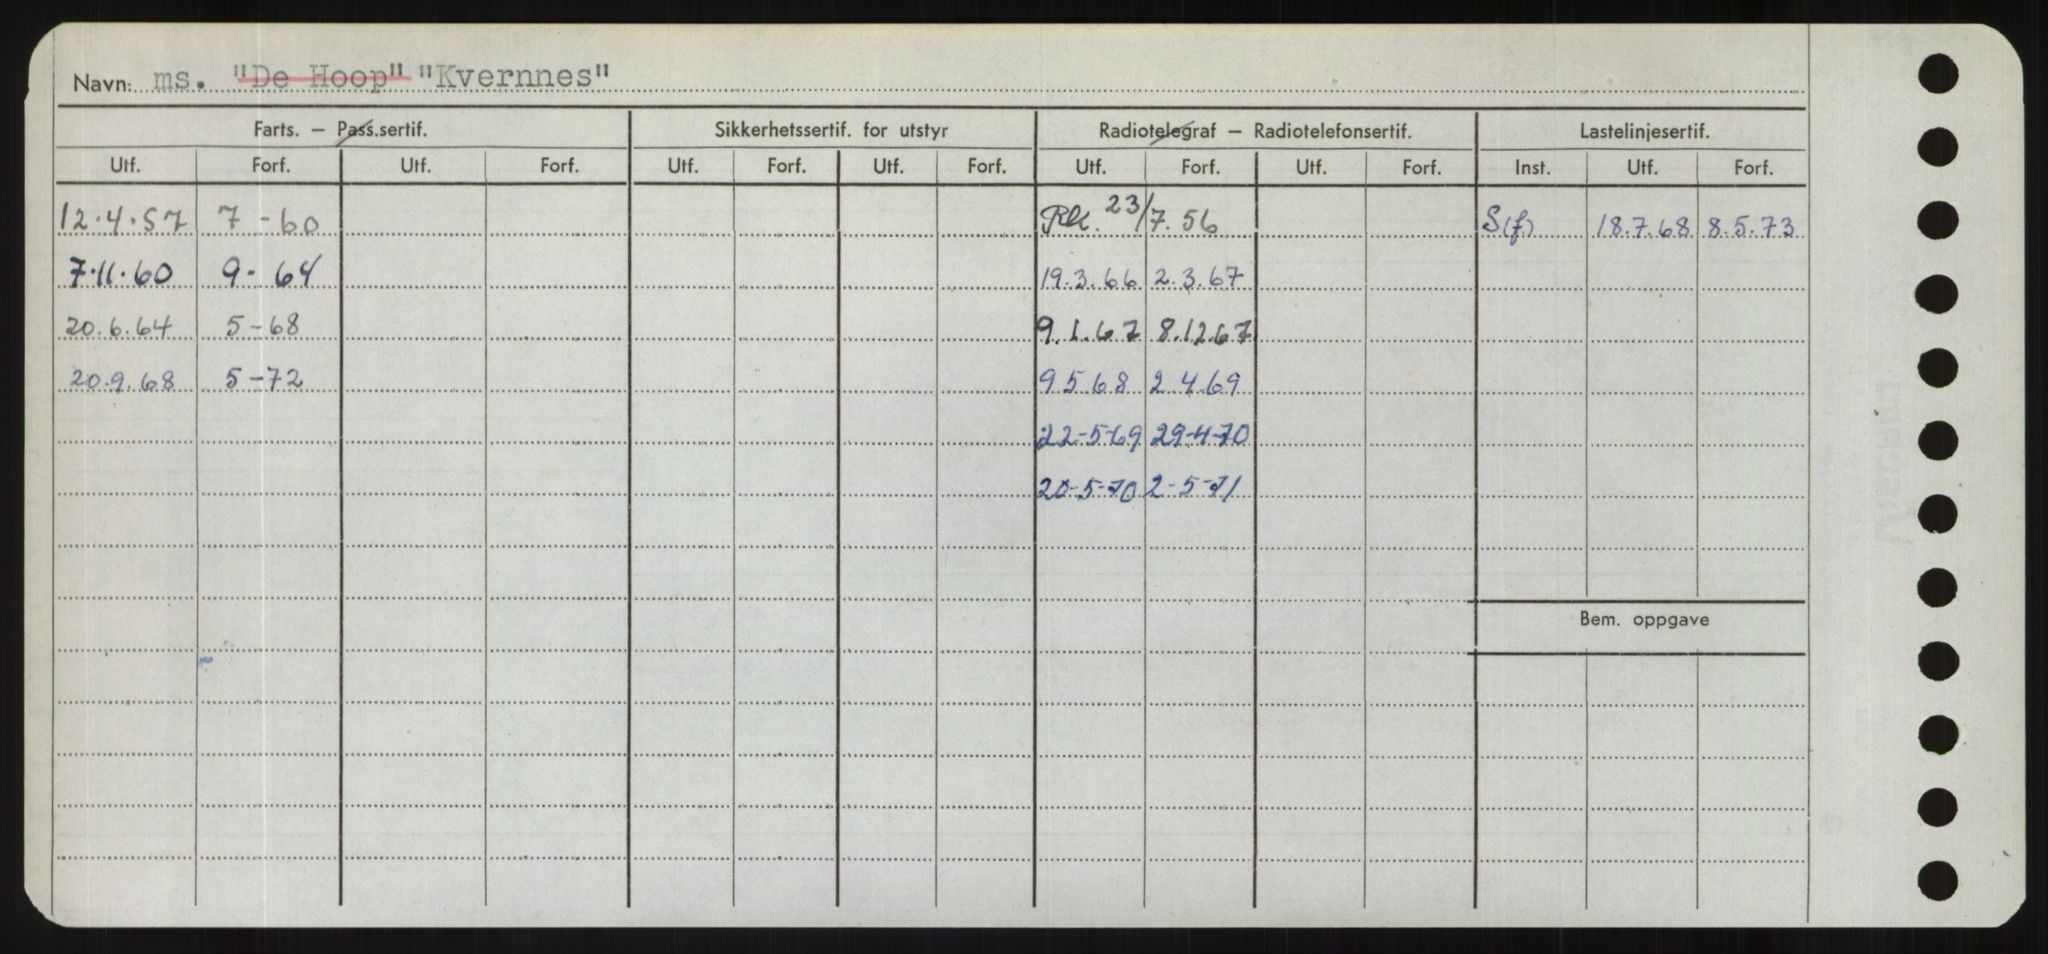 Navn: ms. "De Hoop" "Kvernnes"
Farts. — Pass.sertif. Sikkerhetssertif. for utstyr Radiotelegraf — Radiotelefonsertif. Lastelinjesertif.
Utf. Forf. Utf. Forf. Utf. Forf. Utf. Forf. Utf. Forf. Utf. Forf. Inst. Utf. Forf.
12.4.57 7 - 60 23/7.56 S(f) 18.7.68 8.5.73
7.11.60 9 - 64 19.3.66 2.3.67
20.6.64 5-68 9.1.67 8.12.67
20.9.68 5-72 9.5.68 2.4.69
22-5-69 29-4-70
20-5-70 2-5-71
Bem. oppgave